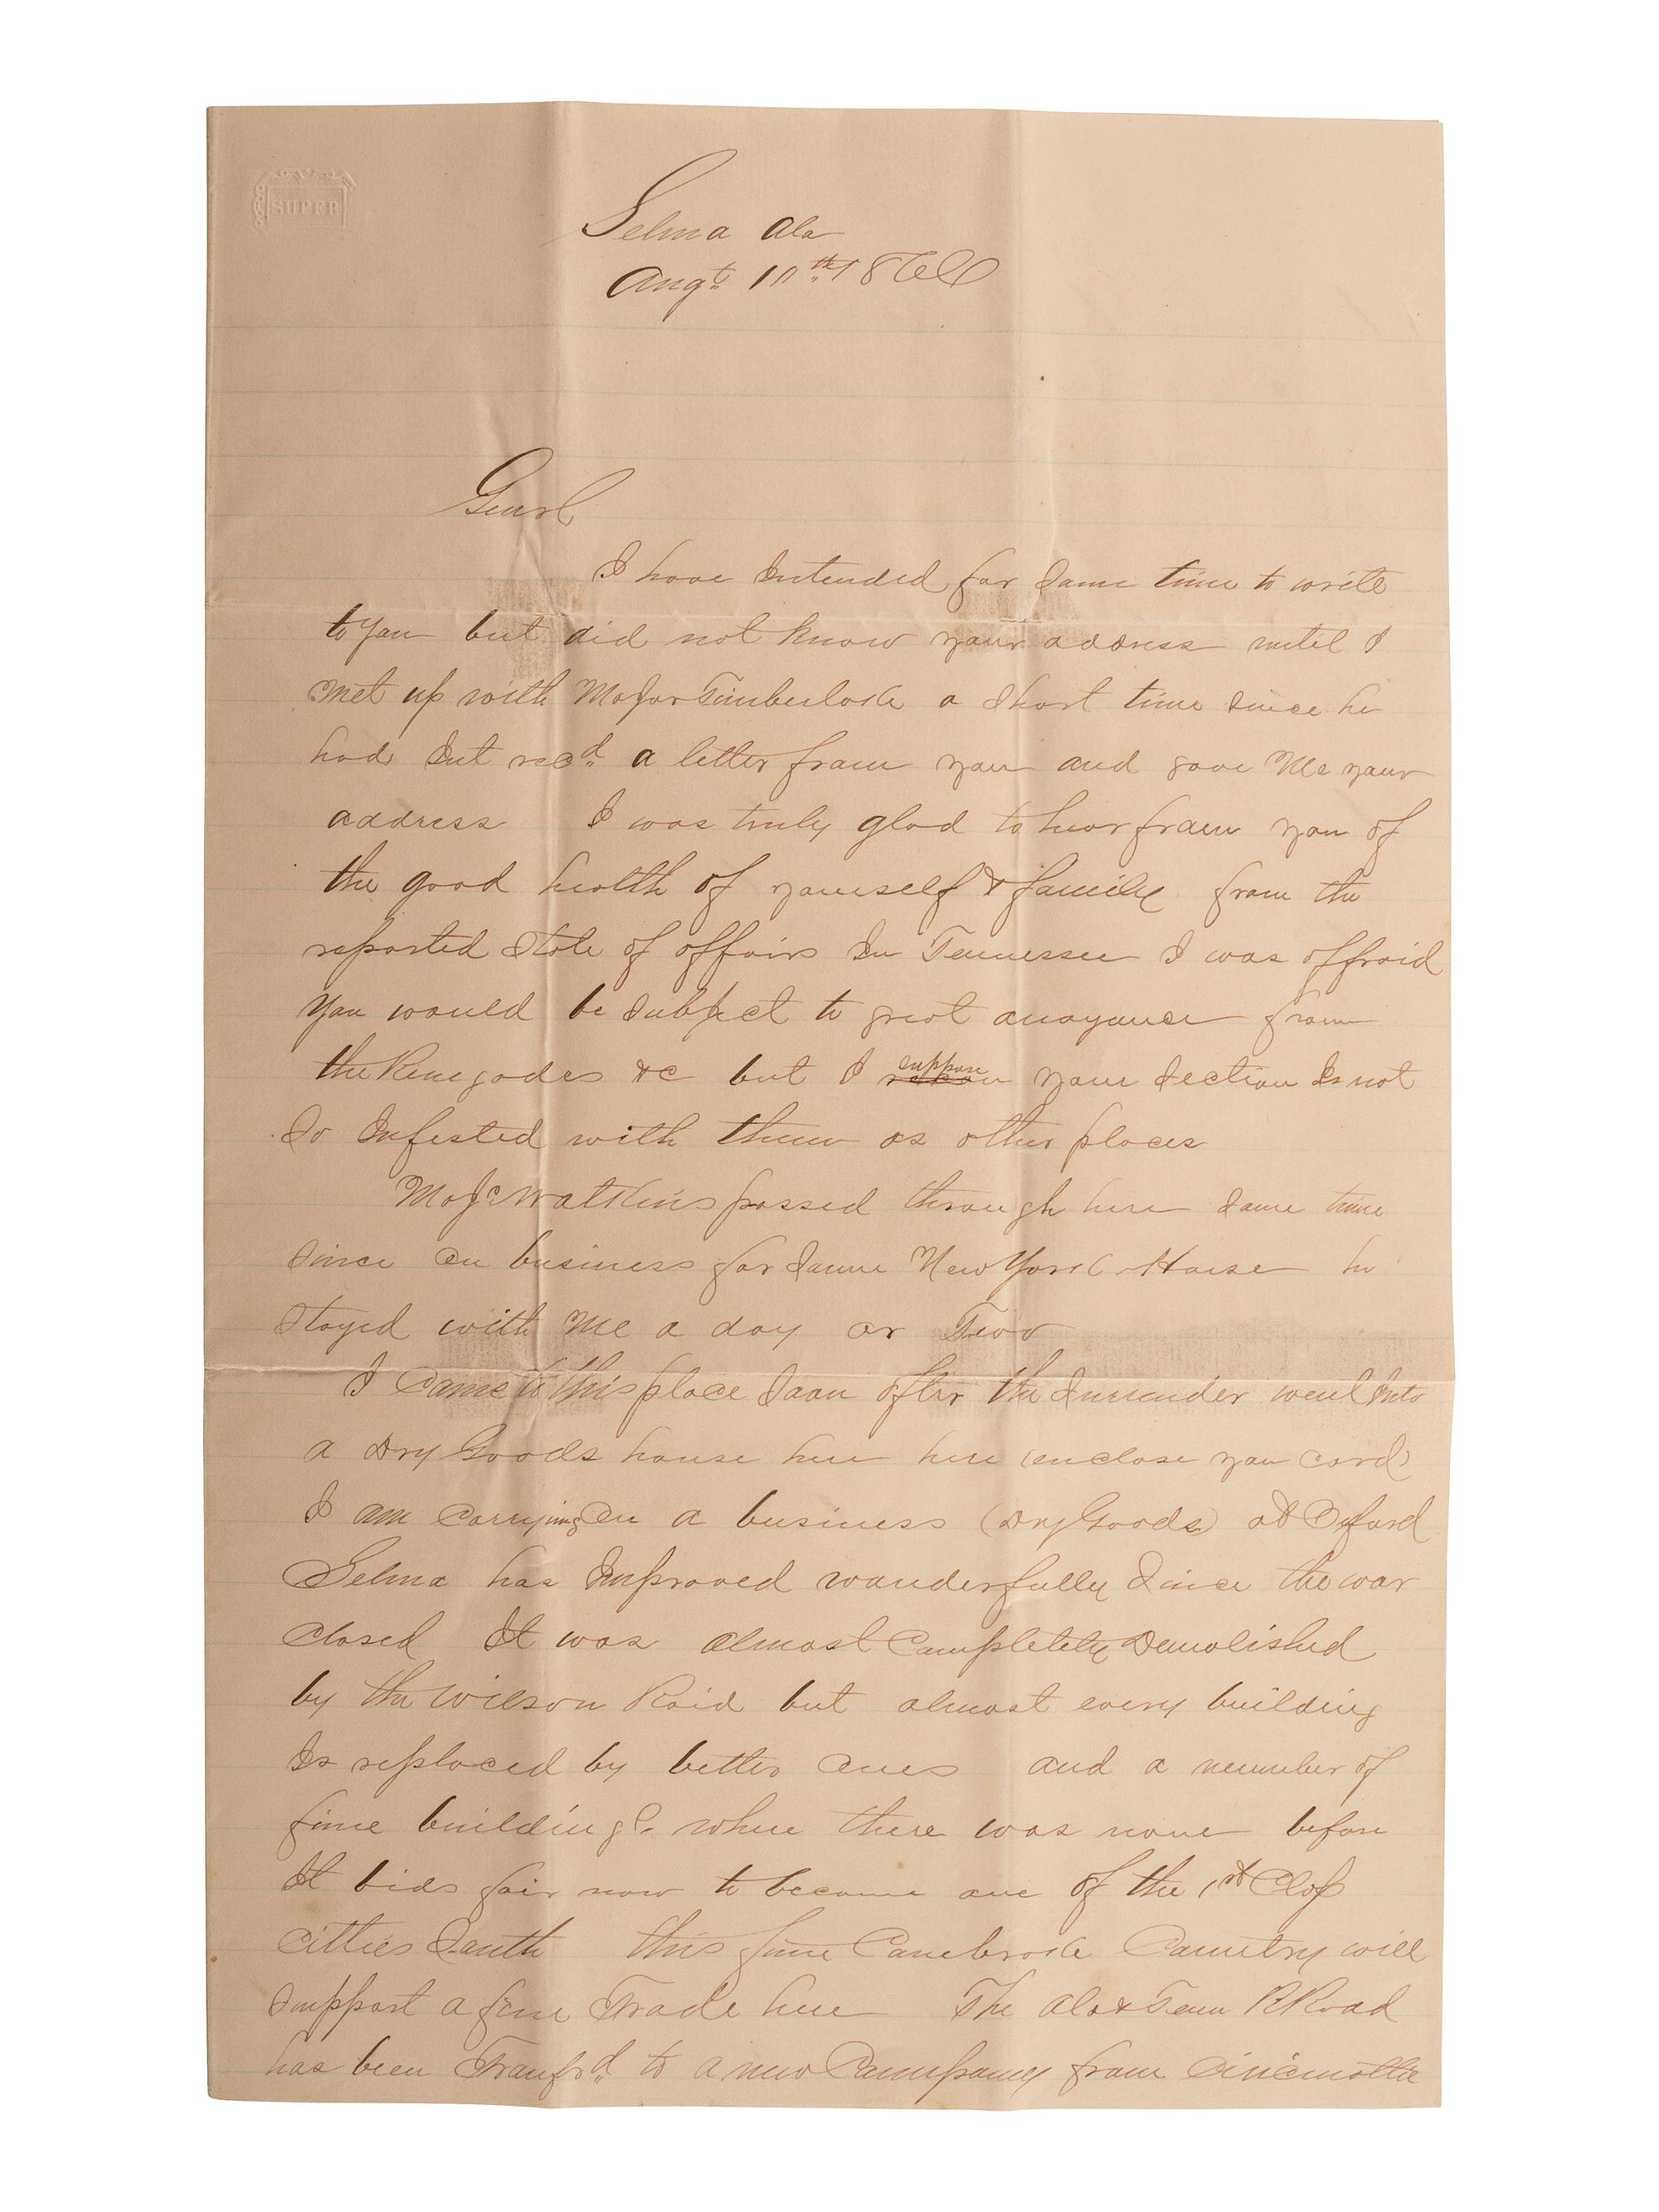 SUPER
Selma Ala
Augt 10th 1866
Genrl
I have Intended for Some time to write
to you but did not know your address until I
Met up with Major Timberlake a Short time Since he
had Just recd a letter from you and gave Me your
address I was truly glad to hear from you of
the good health of yourself & family from the
reported State of affairs In Tennessee I was affraid
you would be Subject to great anoyance from
the Renegades &c but I suppose your Section Is not
So Infested with them as other places
Majr Watkins passed through here Some time
Since on business for Some New York House he
Stayed with Me a day or Two
I Came to this place Soon after the Surrender went Into
a Dry Goods house here here (enclose you card)
I am Carrying On a business (Dry Goods) at Oxford
Selma has Improved wonderfully Since the war
Closed It was almost Completely Demolished
by the Wilson Raid but almost every building
Is replaced by better Ones and a number of
fine buildings where there was none before
It bids fair now to become one of the 1st Class
Citties South this fine Canebrake Country will
Support a fine Trade here The Ala & Tenn RRoad
has been Transfrd to a new Company from Cincinattie